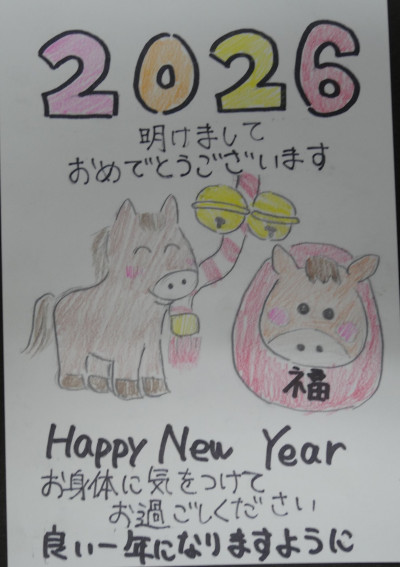 2026
明けまして
おめでとうございます
福
Happy New Year
お身体に気をつけて
お過ごしください
良い一年になりますように